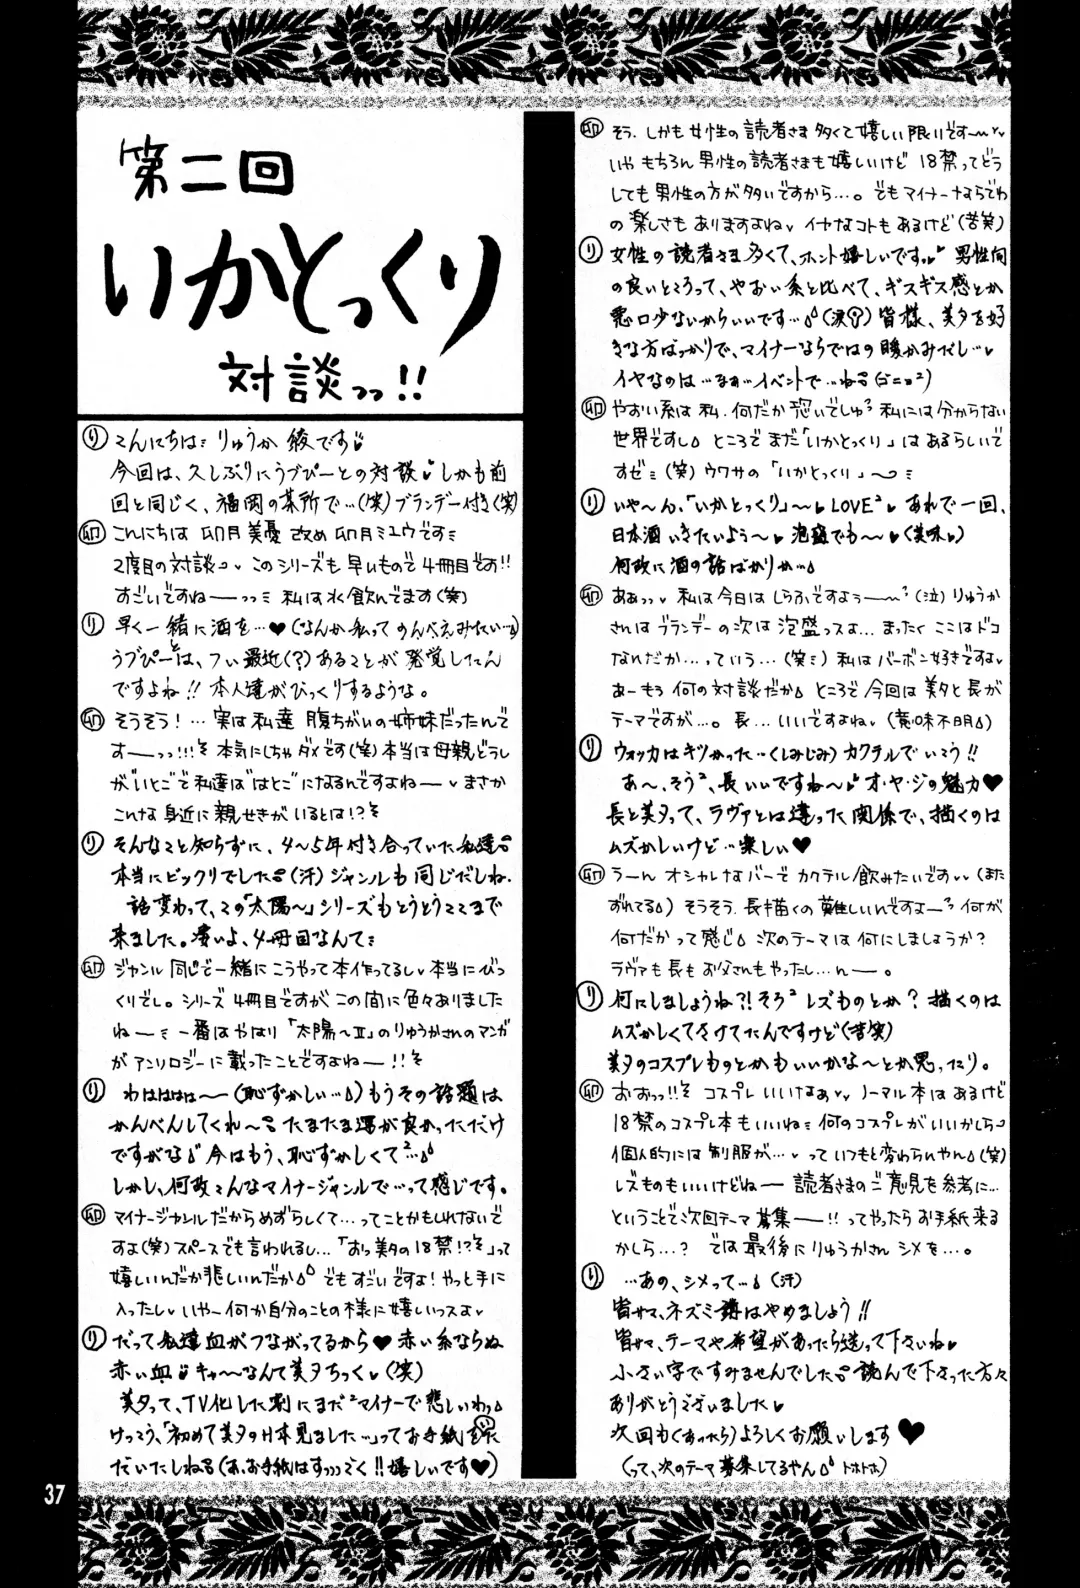 第二回
いかとっくり
対談っっ!!
り こんにちはミ りゅうか 綾です♥
今回は、久しぶりにうブぴーとの対談♥しかも前
回と同じく、福岡の某所で…(笑)ブランデー付き(笑)
卯 こんにちは 卯月 美憂 改め 卯月ミユウですミ
2度目の対談っ♥ このシリーズも早いもので4冊目です!!
すごいですねーっっミ 私は水飲んでます(笑)
り 早く一緒に酒を…♥(なんか私ってのんべえみたい…)
うブぴーとは、つい最近(?)あることが発覚したん
ですよね!! 本人達がびっくりするような。
卯 そうそう!…実は私達 腹ちがいの姉妹だったんで
すーっっ!!! 本気にしちゃダメです(笑)本当は母親どうし
がいとこで私達は"はとこ"になるんですよねー♥まさか
こんな身近に親せきがいるとは!?
り そんなこと知らずに、4〜5年付き合っていた私達
本当にビックリでした(汗)ジャンルも同じだしね。
話変わって、この「太陽〜」シリーズもとうとうここまで
来ました。凄いよ、4冊目なんてミ
卯 ジャンル同じで一緒にこうやって本作ってるし♥本当にびっ
くりでし。シリーズ4冊目ですがこの間に色々ありました
ねーミ 一番はやはり「太陽〜II」のりゅうかさんのマンガ
がアンソロジーに載ったことですよねー!!
り わはははは〜(恥ずかしい…)もうその話題は
かんべんしてくれ〜 たまたま運が良かっただけ
ですがな 今はもう、恥ずかしくて²…
しかし、何故こんなマイナージャンルで…って感じです。
卯 マイナージャンルだからめずらしくて…ってことかもしれないで
すよ(笑)スペースでも言われるし…「おっ美夕の18禁!?」って
嬉しいんだか悲しいんだか でもすごいですよ!やっと手に
入ったし♥いやー何か自分のことの様に嬉しいっスよ♥
り だって私達血がつながってるから♥ 赤い糸ならぬ
赤い血 キャ〜なんて美夕ちっく♥(笑)
美夕って、TV化した割にまだ²マイナーで悲しいわっ
けっこう、「初めて美夕の日本見ました…」ってお手紙をいた
だいたしね(あ、お手紙はすっっごく!!嬉しいです♥)
卯 そう。しかも女性の読者さま多くて嬉しい限りです〜♥
いや もちろん男性の読者さまも嬉しいけど 18禁ってどう
しても男性の方が多いですから…。でもマイナーならでわ
の楽しさもありますよね♥イヤなコトもあるけど(苦笑)
り 女性の読者さま多くて、ホント嬉しいです♥ 男性向
の良いところって、やおい系と比べて、ギスギス感とか
悪口少ないからいいです…(涙)皆様、美夕を好
きな方ばっかりで、マイナーならではの暖かみだし…♥
イヤなのは…なぁ…イベントで…ね(ゴニョ²)
卯 やおい系は私、何だか恐いでしゅ 私には分からない
世界ですし ところでまだ「いかとっくり」はあるらしいで
すぜミ(笑)ウワサの「いかとっくり」〜ミ
り いや〜ん、「いかとっくり」〜♥LOVE²♥ あれで一回、
日本酒いきたいよう〜♥ 泡盛でも〜♥(美味♥)
何故に酒の話ばかりか…
卯 あぁっっ♥ 私は今日はしらふですよぅー〜(泣)りゅうか
さんはブランデーの次は泡盛っスよ… まったくここはドコ
なんだか…っていう…(笑ミ)私はバーボン好きですよ♥
あーもう何の対談だか ところで今回は美夕と長が
テーマですが…。長…いいですよね♥(意味不明)
り ウォッカはキツかった…(しみじみ)カクテルでいこう!!
あ〜、そう²、長いいですね〜♥オ・ヤ・ジの魅力♥
長と美夕って、ラヴァとは違った関係で、描くのは
ムズかしいけど…楽しい♥
卯 うーん オシャレなバーでカクテル飲みたいです♥♥(また
ずれてる)そうそう、長を描くの難しいんですよー 何が
何だかって感じ 次のテーマは何にしましょうか?
ラヴァも長もお父さんもやったし…んー。
り 何にしましょうね?!そろ² レズものとか? 描くのは
ムズかしくてさけてたんですけど(苦笑)
美夕のコスプレものとかもいいかな〜とか思ったり。
卯 おおっっ!! コスプレいいけなぁ♥♥ ノーマル本はあるけど
18禁のコスプレ本もいいねミ何のコスプレがいいかしら
個人的には制服が…♥っていつもと変わらんやん(笑)
レズものもいいけどねー 読者さまのご意見を参考に…
ということで次回テーマ募集ー!!ってやったらお手紙来る
かしら…? では最後にりゅうかさんシメを…。
り …あの、シメって…(汗)
皆サマ、ネズミ講はやめましょう!!
皆サマ、テーマや希望があったら送って下さいね♥
小さい字ですみませんでした 読んで下さった方々
ありがとうございました♥
次回も(あったら)よろしくお願いします♥
(って、次のテーマ募集してるやん トホホ)
37